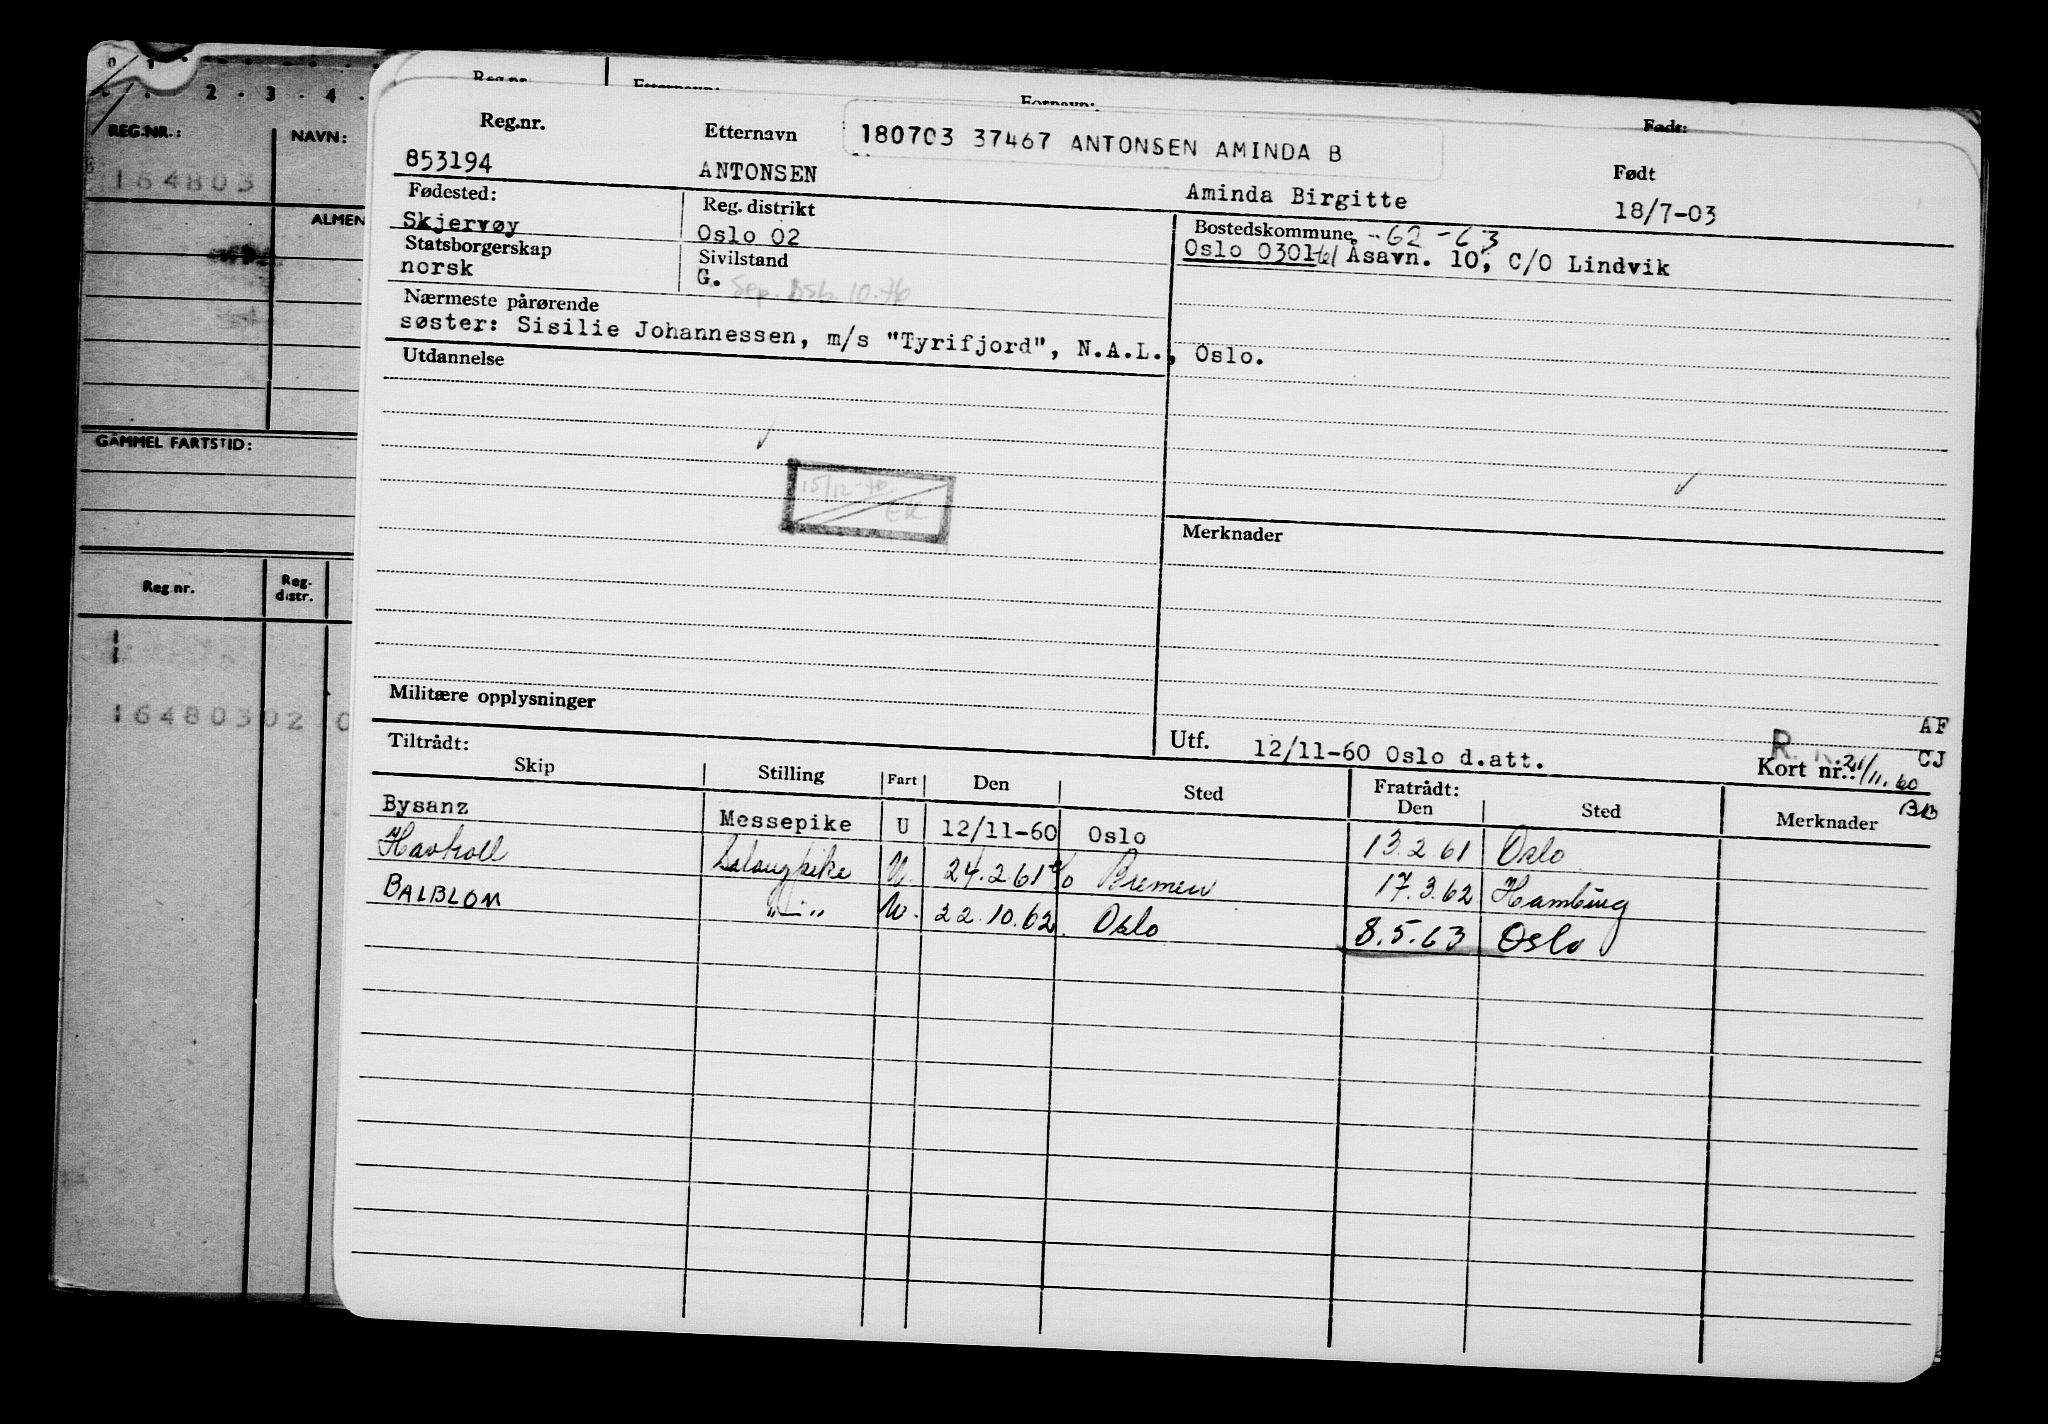 0 1
2 . 3 . 4 .
REG.NR.: NAVN:
164803
ALMEN
GAMMEL FARTSTID:
Reg.nr. Reg. distr.
16480302 0
Reg.nr. Etternavn: Fornavn: Født:
Reg.nr. Etternavn 180703 37467 ANTONSEN AMINDA B Født
853194 ANTONSEN Aminda Birgitte 18/7-03
Fødested: Reg. distrikt Bostedskommune -62 -63
Skjervøy Oslo 02 Oslo 0301-61 Åsavn. 10, C/O Lindvik
Statsborgerskap Sivilstand
norsk G. Sep. 10.76
Nærmeste pårørende
søster: Sisilie Johannessen, m/s "Tyrifjord", N.A.L., Oslo.
Utdannelse
15/12-76
EK
Merknader
Militære opplysninger
AF
Utf. 12/11-60 Oslo d.att. R. CJ
Tiltrådt: Kort nr.: 21/11.60
Skip Stilling Fart Den Sted Fratrådt: Den Sted Merknader BB
Bysanz Messepike U 12/11-60 Oslo 13.2.61 Oslo
Havkoll Salongpike U. 24.2.61 Bremen 17.3.62 Hamburg
BALBLOM "—" U. 22.10.62 Oslo 8.5.63 Oslo